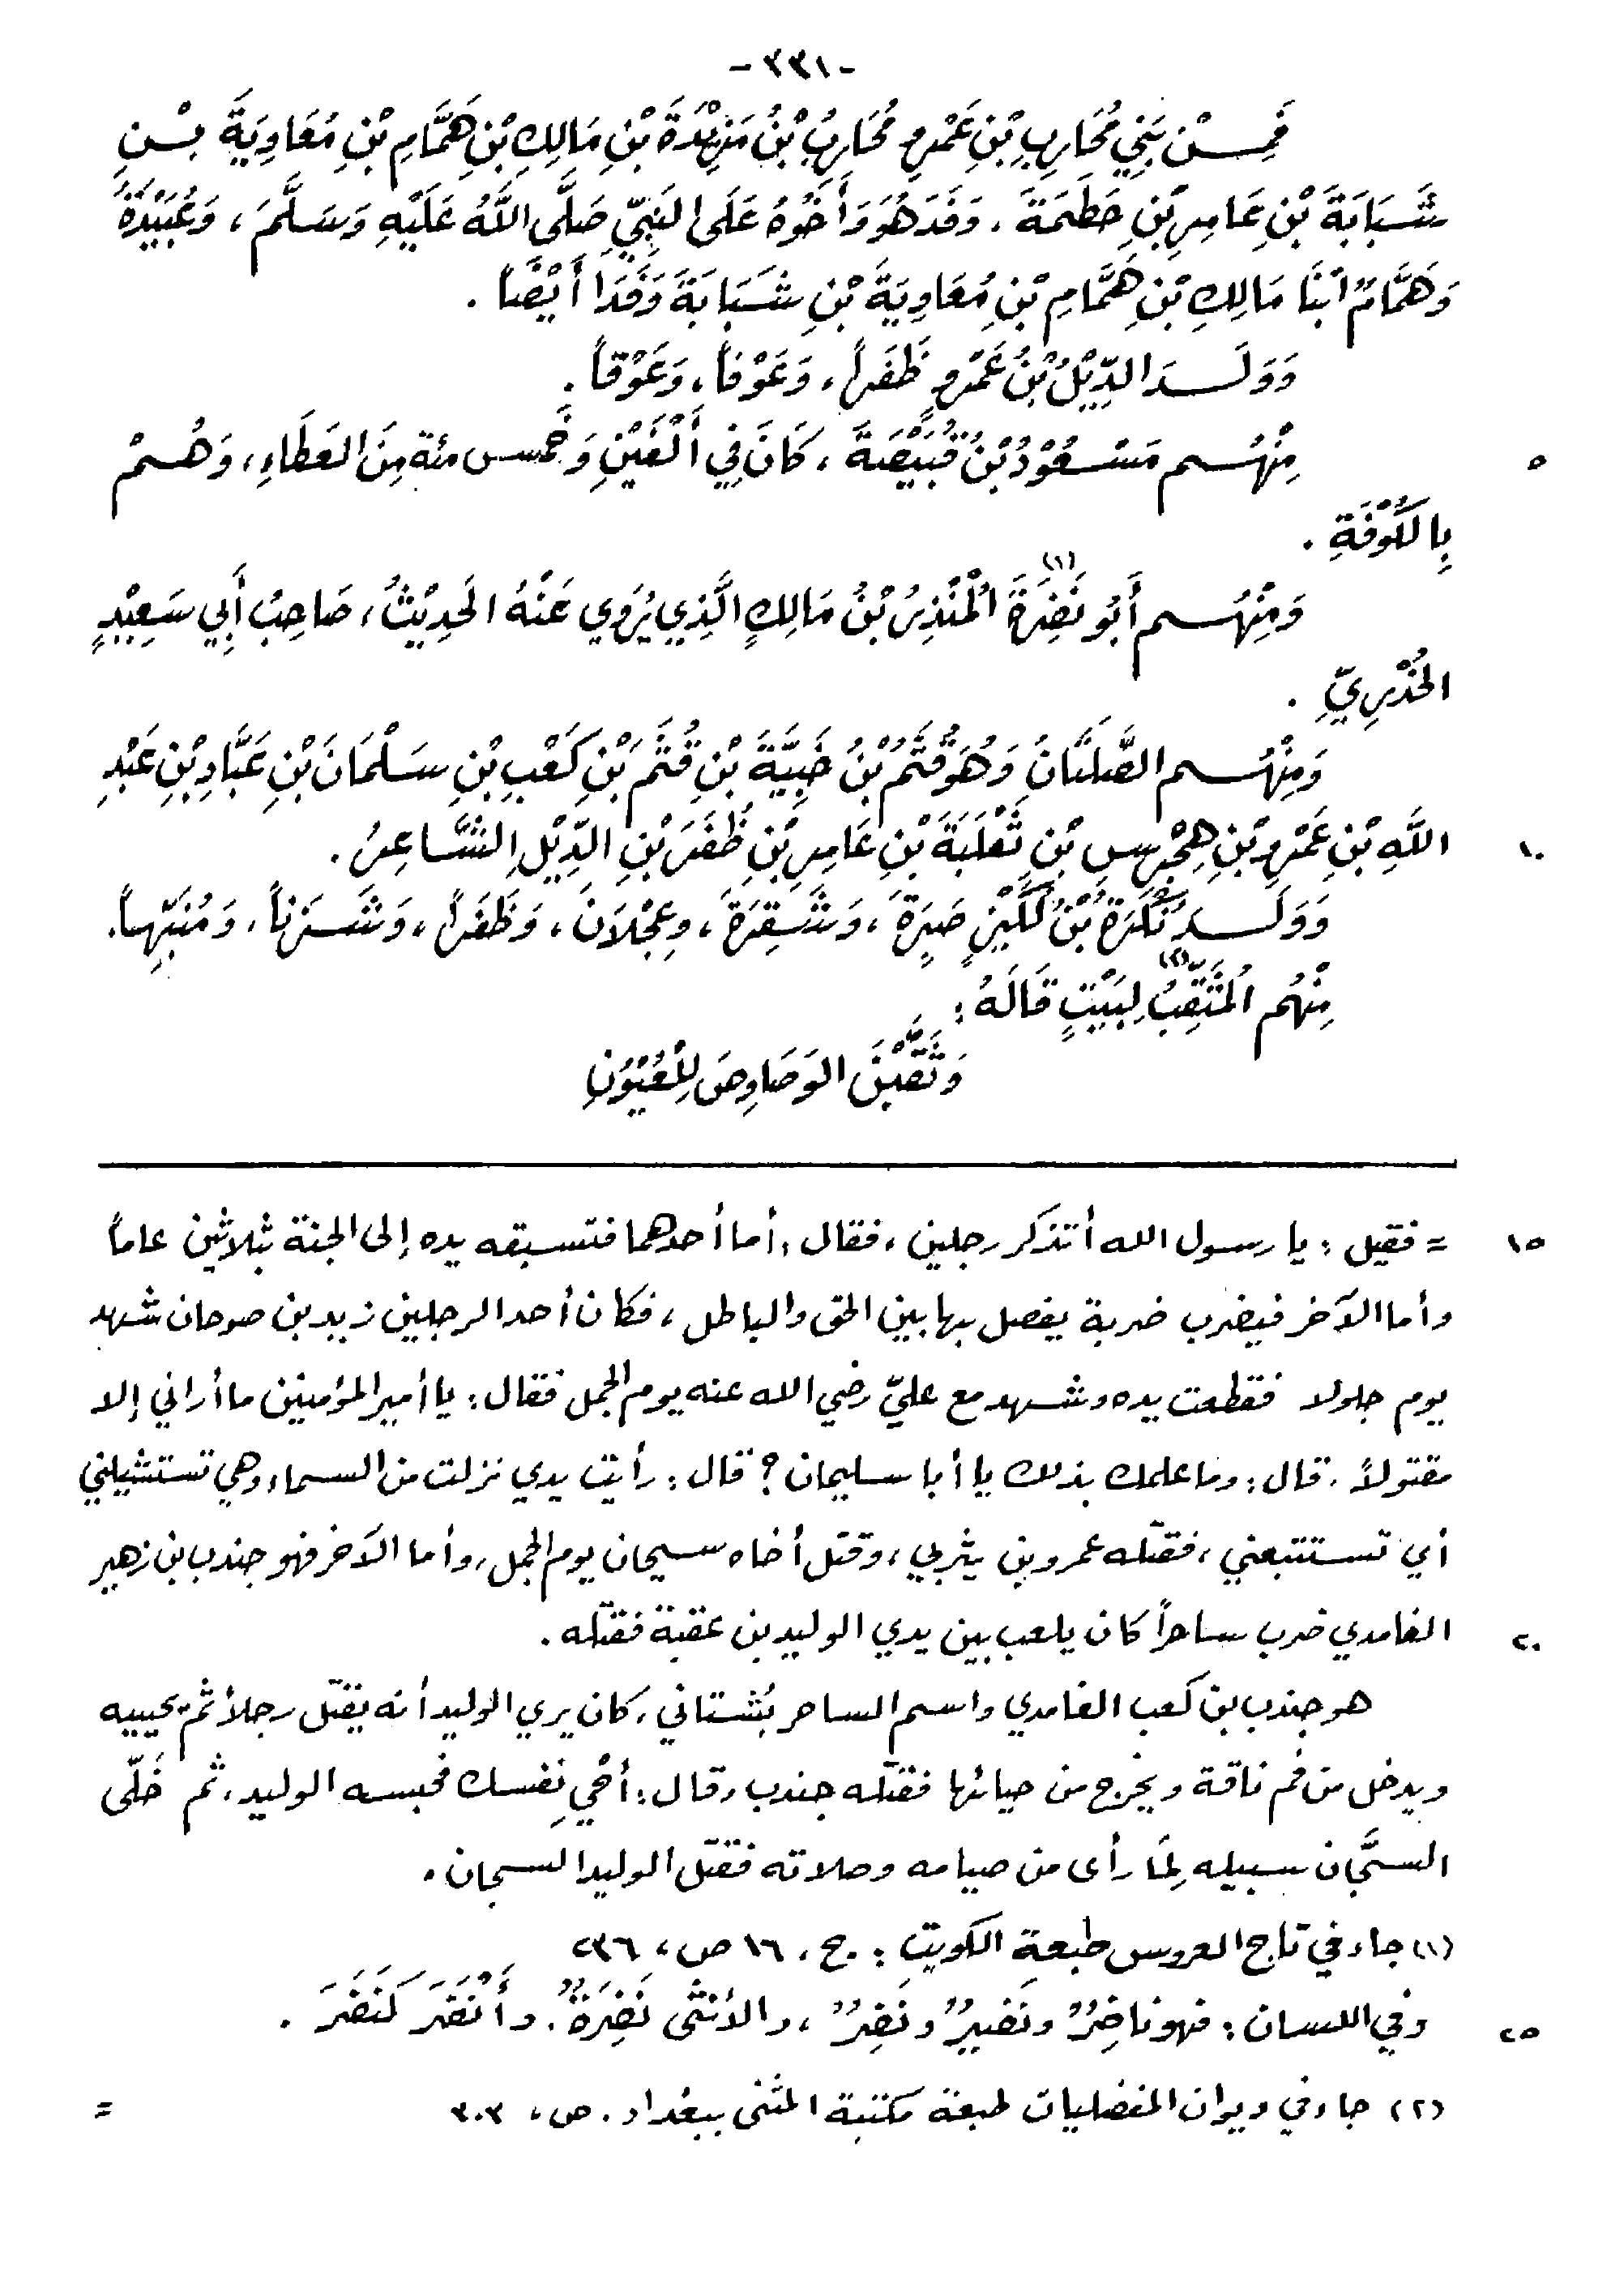 -٣٣١-
فَمِنْ بَنِي مُحَارِبِ بْنِ عَمْرٍو مُحَارِبُ بْنُ مَزِيْدَةَ بْنِ مَالِكِ بْنِ هَمَّامِ بْنِ مُعَاوِيَةَ بْنِ
شَبَابَةَ بْنِ عَامِرِ بْنِ حَطَمَةَ، وَفَدَ هُوَ وَأَخُوهُ عَلَى النَبِيِّ صَلَّى اللَّهُ عَلَيْهِ وَسَلَّمَ، وَعُبَيْدَةُ
وَهَمَّامٌ ابْنَا مَالِكِ بْنِ هَمَّامِ بْنِ مُعَاوِيَةَ بْنِ شَبَابَةَ وَفَدَا أَيْضاً.
وَوَلَدَ الدِّيْلُ بْنُ عَمْرٍو ظَفَراً، وَعَوْفاً، وَعَوْقاً.
٥ مِنْهُم مَسْعُوْدُ بْنُ قُبَيْصَةَ، كَانَ فِي أَلْفَيْنِ وَخَمْس مئة مِنَ العَطَاءِ، وَهُمْ
بِالكُوْفَةِ.
وَمِنْهُم أَبُو نَضِرَةَ (١) المُنْذِرُ بْنُ مَالِكٍ الَّذِي يُرْوِي عَنْهُ الحَدِيْثُ، صَاحِبُ أَبِي سَعِيْدٍ
الخُدْرِيِّ.
وَمِنْهُم الصَّلَتَانُ وَهُوَ قُثَمُ بْنُ خَبِيَّةَ بْنِ قُثَمَ بْنِ كَعْبِ بْنِ سَلْمَانَ بْنِ عَبَّادِ بْنِ عَبْدِ
١٠ اللَّهِ بْنِ عَمْرِو بْنِ هِجْرِسِ بْنِ ثَعْلَبَةَ بْنِ عَامِرِ بْنِ ظَفَرَ بْنِ الدِّيْلِ الشَّاعِرُ.
وَوَلَدَ نُكْرَةُ بْنُ لُكَيْزٍ صَبِرَةَ، وَشَقِرَةَ، وعِجْلَانَ، وَظَفَراً، وَشَزَناً، وَمُنَبِّهاً.
مِنْهُم المُثَقِّبُ (٢) لِبَيْتٍ قَالَهُ:
وَثَقَّبْنَ الوَصَاوِصَ لِلْعُيُوْنِ
١٥ = فقيل: يا رسول الله أتذكر رجلين، فقال: أما أحدهما فتسبقه يده إلى الجنة بثلاثين عاماً
وأما الآخر فيضرب ضربة يفصل بها بين الحق والباطل، فكان أحد الرجلين زيد بن صوحان شهد
يوم جلولا فقطعت يده وشهد مع عليّ رضي الله عنه يوم الجمل فقال: يا أمير المؤمنين ما أراني إلا
مقتولاً. قال: وما علمك بذلك يا أبا سليمان؟ قال: رأيت يدي نزلت من السماء وهي تستشيلني
أي تستتبعني، فقتله عمرو بن يثربي، وقتل أخاه سيحان يوم الجمل، وأما الآخر فهو جندب بن زهير
٢٠ الغامدي ضرب ساحراً كان يلعب بين يدي الوليد بن عقبة فقتله.
هو جندب بن كعب الغامدي واسم الساحر بُشتاني، كان يري الوليد أنه يقتل رجلاً ثم يحييه
ويدخل من فم ناقة ويخرج من حيائها فقتله جندب وقال: أحْيِ نفسك فحبسه الوليد، ثم خَلّى
السجَّان سبيله لِمَا رأى من صيامه وصلاته فقتل الوليد السجان.
(١) جاء في تاج العروس طبعة الكويت: ج، ١٦ ص، ٢٣٦
٢٥ وفي اللسان: فهو ناضِرٌ ونَضيرٌ ونَضِرٌ، والأنثى نَضِرَةٌ. وأَنْضَرَ كَنَضَرَ.
(٢) جاء في ديوان المفضليات طبعة مكتبة المثنى ببغداد. ص، ٣٠٣ =